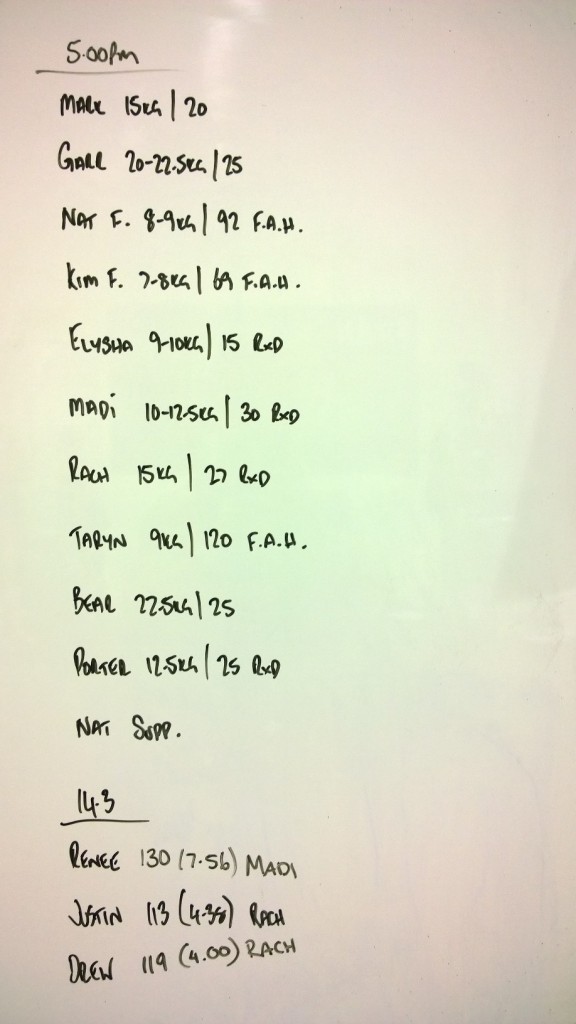 5.00pm
MARK 15KG | 20
GARR 20-22.5KG | 25
NAT F. 8-9KG | 92 F.A.H.
KIM F. 7-8KG | 69 F.A.H.
ELYSHA 9-10KG | 15 RxD
MADi 10-12.5KG | 30 RxD
RACH 15KG | 27 RxD
TARYN 9KG | 120 F.A.H.
BEAR 22.5KG | 25
PORTER 12.5KG | 25 RxD
NAT SUPP.
14.3
RENEE 130 (7.56) MADI
JUSTIN 113 (4.38) RACH
DREW 119 (4.00) RACH